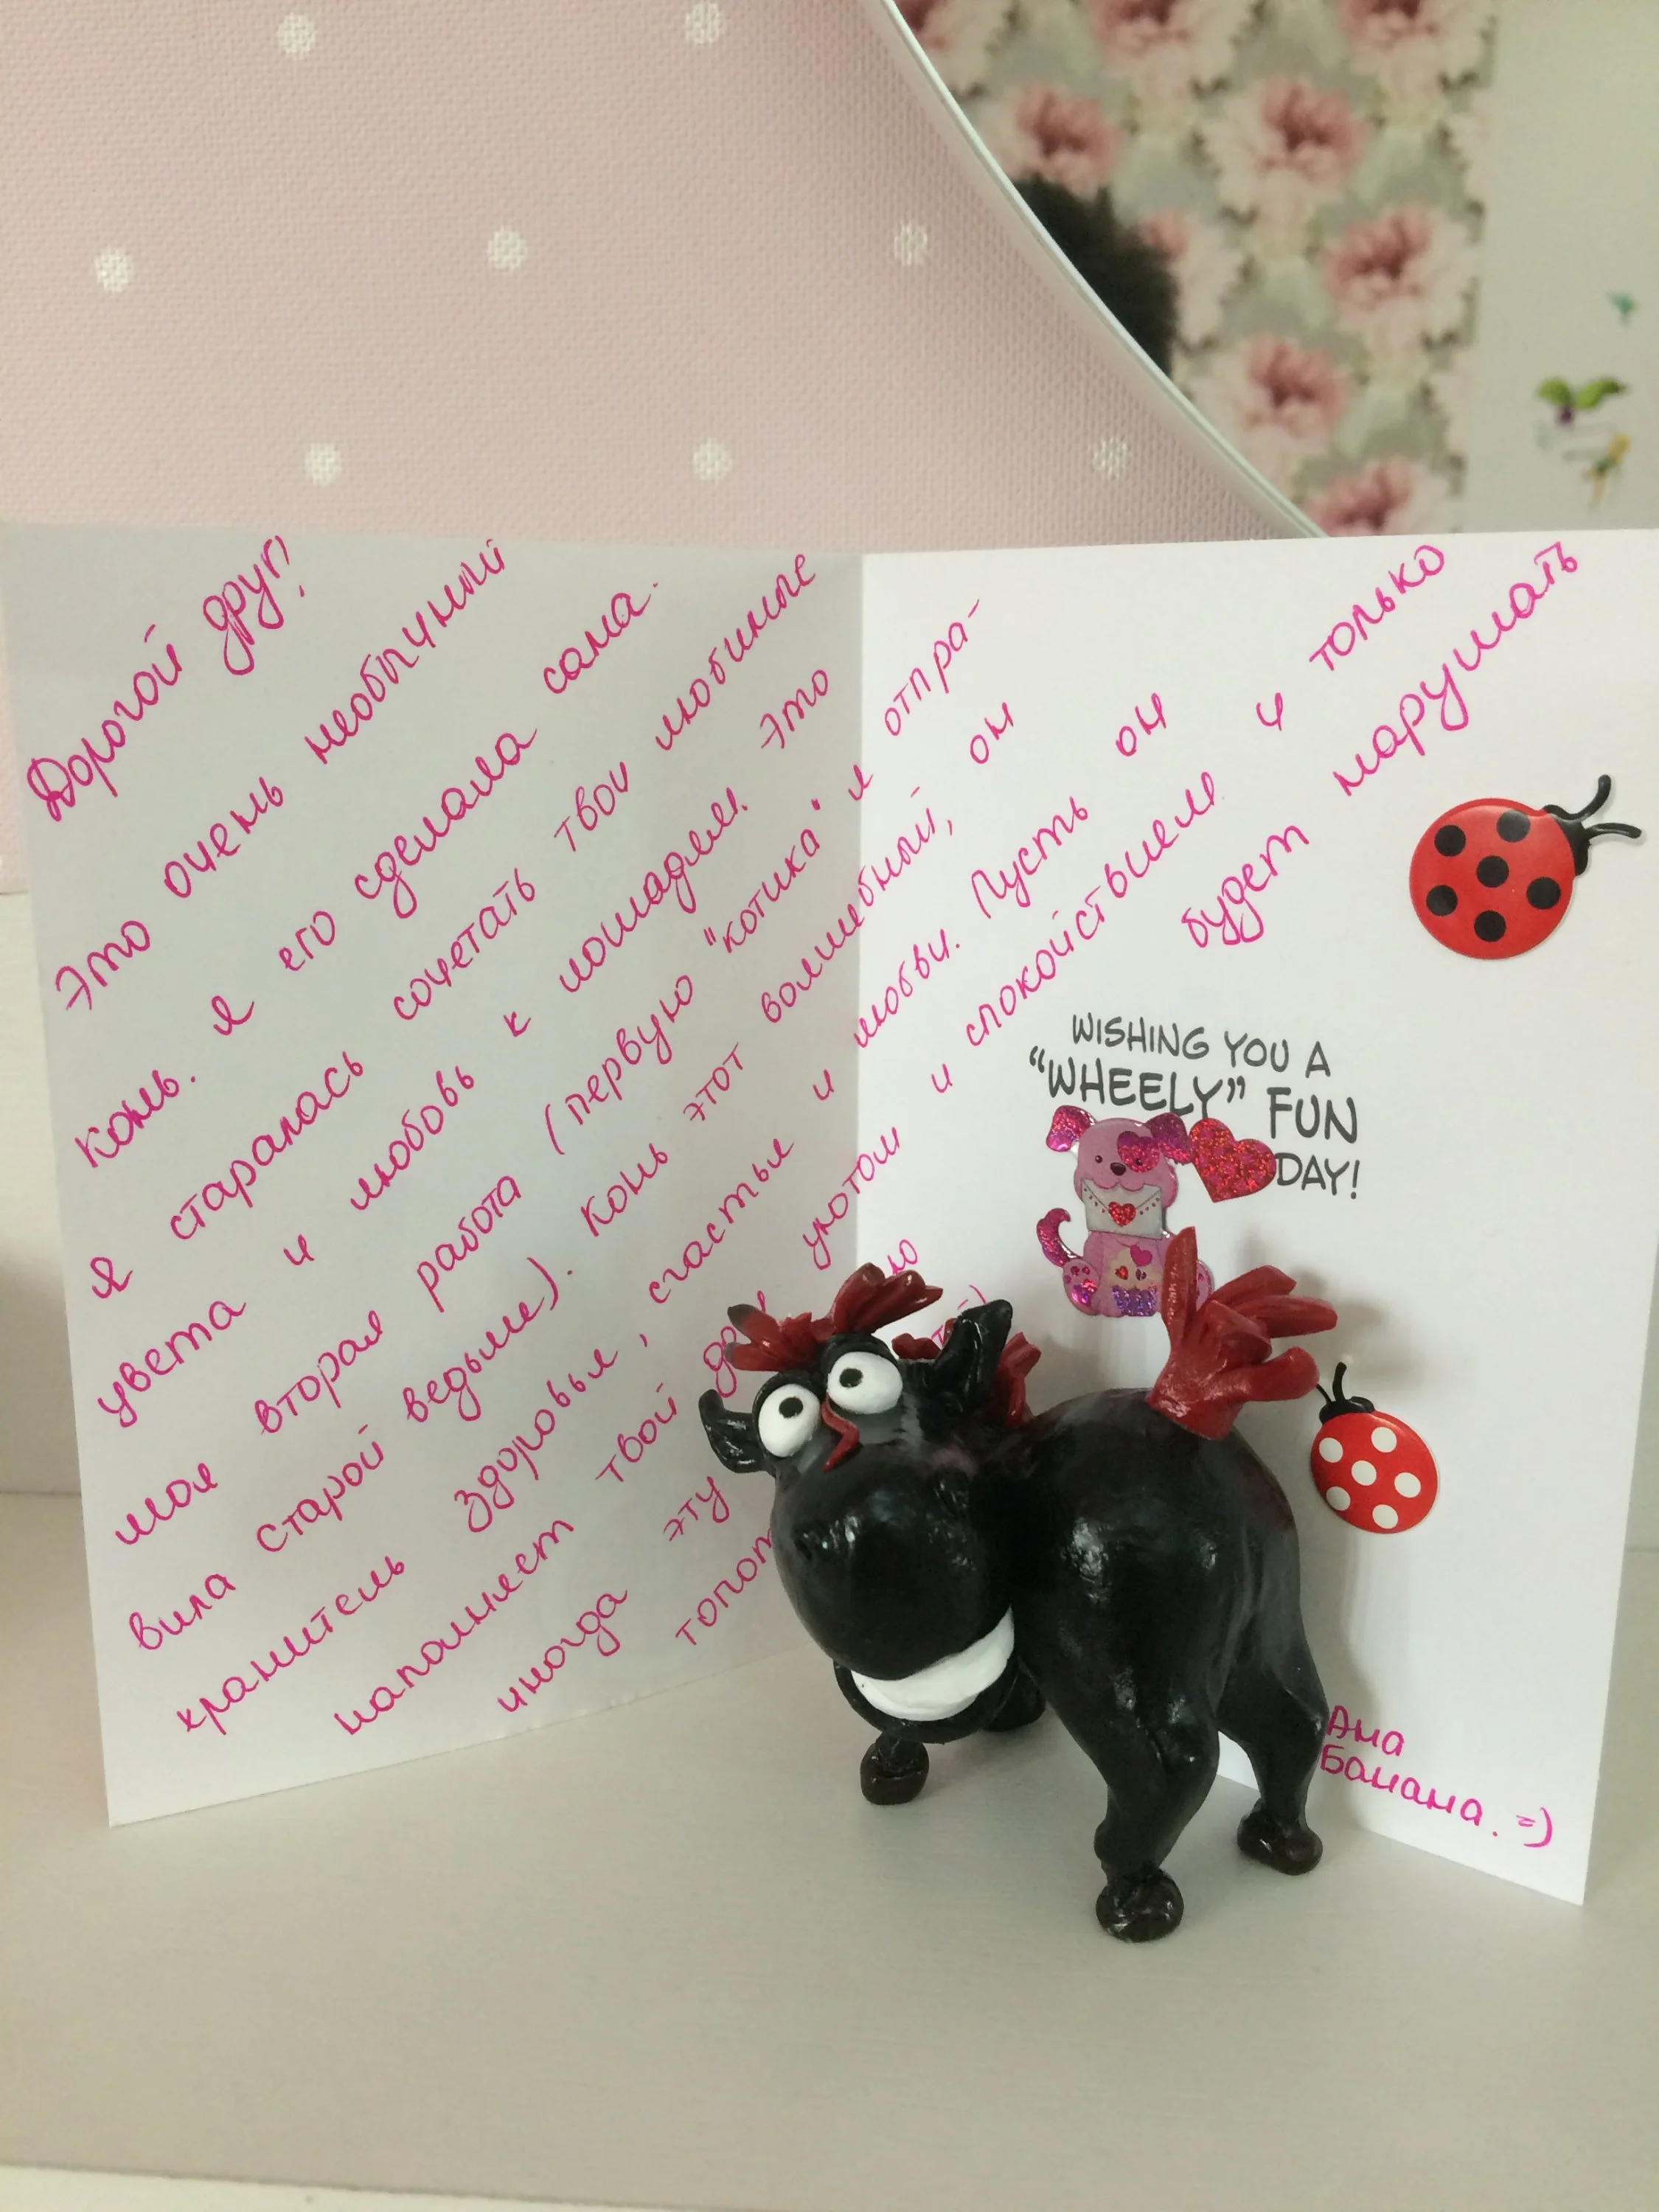 Дорогой друг!
Это очень необычный
конь. Я его сделала сама.
Я старалась сочетать твои любимые
цвета и любовь к лошадям. Это
моя вторая работа (первую "котика" я отпра-
вила старой ведьме). Конь этот волшебный, он
хранитель здоровья, счастья и любви. Пусть он
наполняет твой уютом и спокойствием и только
иногда эту будет нарушать
топот
WISHING YOU A
“WHEELY” FUN
DAY!
Ана
Банана. =)